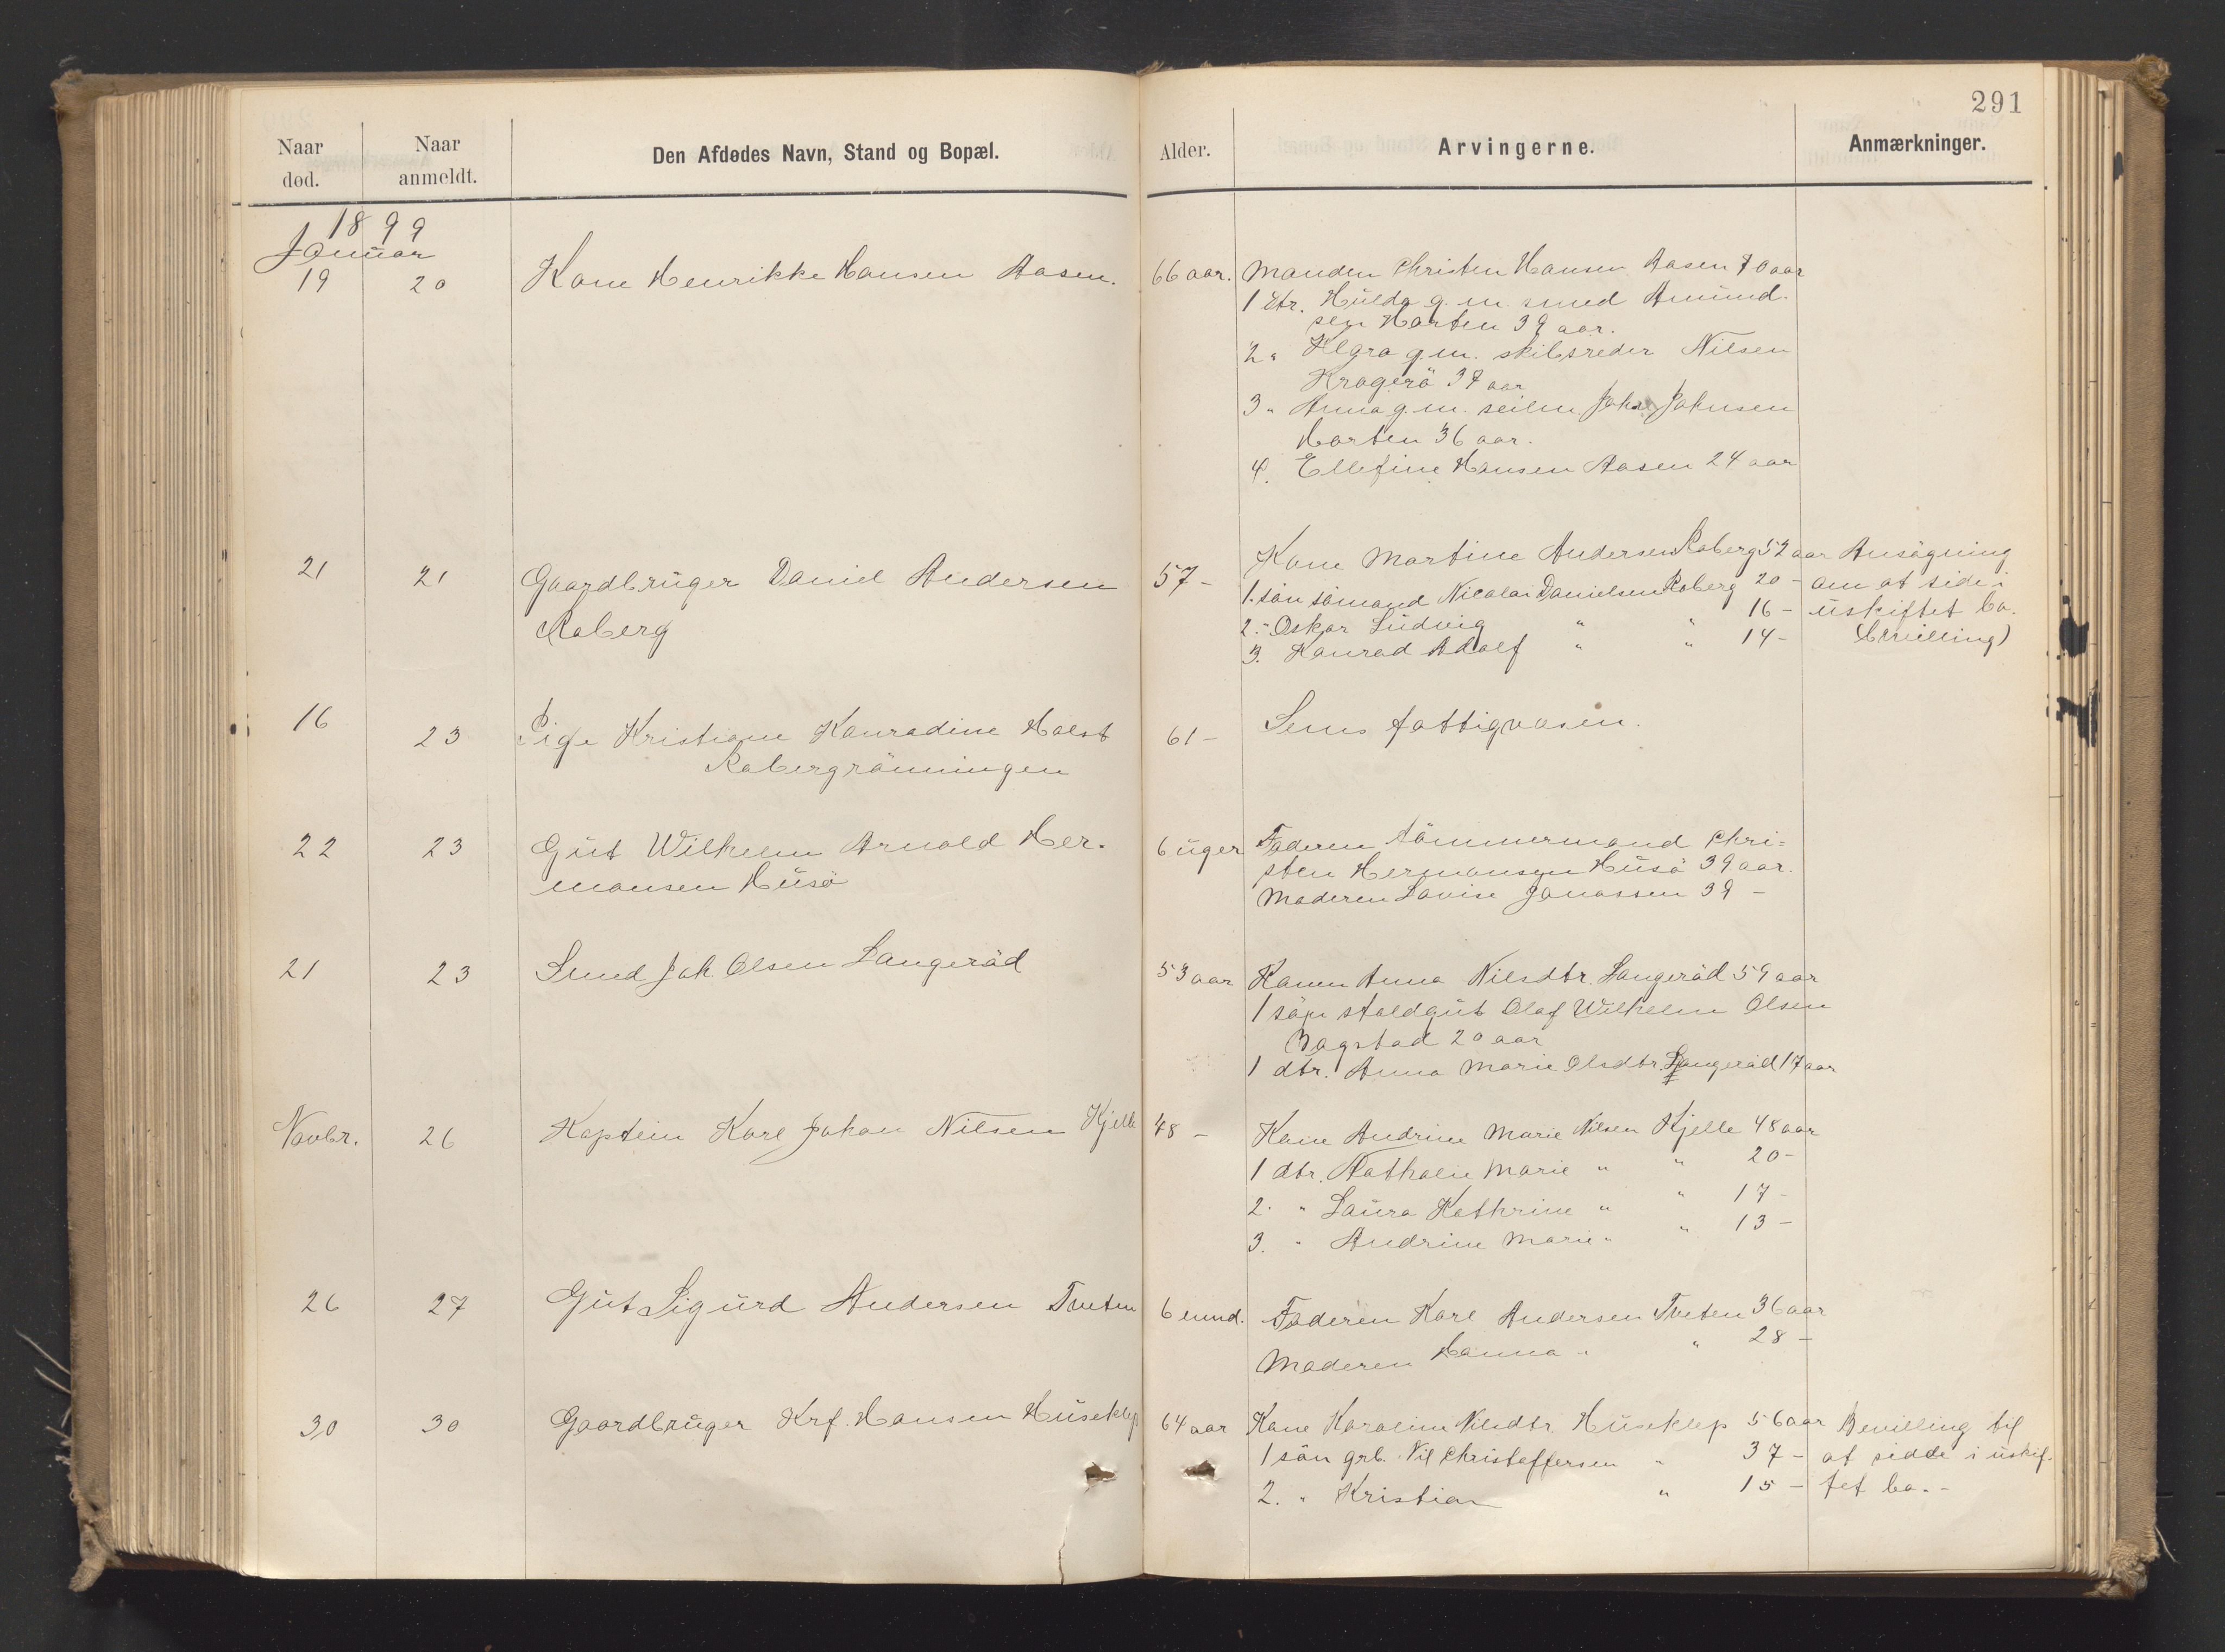 291
Naar død.
Naar anmeldt.
Den Afdødes Navn, Stand og Bopæl.
Alder.
Arvingerne.
Anmærkninger.
1899
Januar
19 20 Kone Henrikke Hansen Aasen. 66 aar. Manden Christen Hansen Aasen 70 aar
1 dtr. Hulda g. m. smed Amund-
sen Horten 39 aar.
2 " Klara g.m. skibsreder Nilsen
Kragerö 37 aar
3 " Anna g.m. seilm. Johs Johnsen
Horten 36 aar.
4. Ellefine Hansen Aasen 24 aar
21 21 Gaardbruger Daniel Andersen 57 - Kone Martine Andersen Raberg 52 aar Ansögning
1. sön sömand Nicolai Danielsen Raberg 20 - om at side i
Raberg
2. " Oskar Ludvig " " 16 - uskiftet bo.
3. Konrad Adolf " " 14 - (bevilling)
16 23 Pige Kristiane Konradine Holst 61 - Sems fattigvæsen.
Rabergrönningen
22 23 Gut Wilhelm Arnold Her- 6 uger Faderen tömmermand Chri-
mansen Husö sten Hermansen Husö 39 aar.
Moderen Lovise Jonassen 39 -
21 23 Smed Joh. Olsen Langeråd 53 aar Konen Anna Nilsdtr. Langeråd 59 aar
1 sön staldgut Olaf Wilhelm Olsen
Bogstad 20 aar
1 dtr. Anna Marie Olsdtr. Langeråd 17 aar
Novbr. 26 Kaptein Karl Johan Nilsen Kjelle 48 - Kone Andrine Marie Nilsen Kjelle 48 aar
1 dtr. Nathalie Marie " " 20 -
2. " Laura Kathrine " " 17 -
3. " Andrine Marie " " 13 -
26 27 Gut Sigurd Andersen Tveten 6 mnd. Faderen Karl Andersen Tveten 36 aar
Moderen Hanna " " 28 -
30 30 Gaardbruger Krf. Hansen Huseklep 64 aar Kone Karoline Nilsdtr. Huseklep 56 aar Bevilling til
1 sön grb. Nil Christoffersen " 37 - at sidde i uskif-
2. " Kristian " 15 - tet bo. -